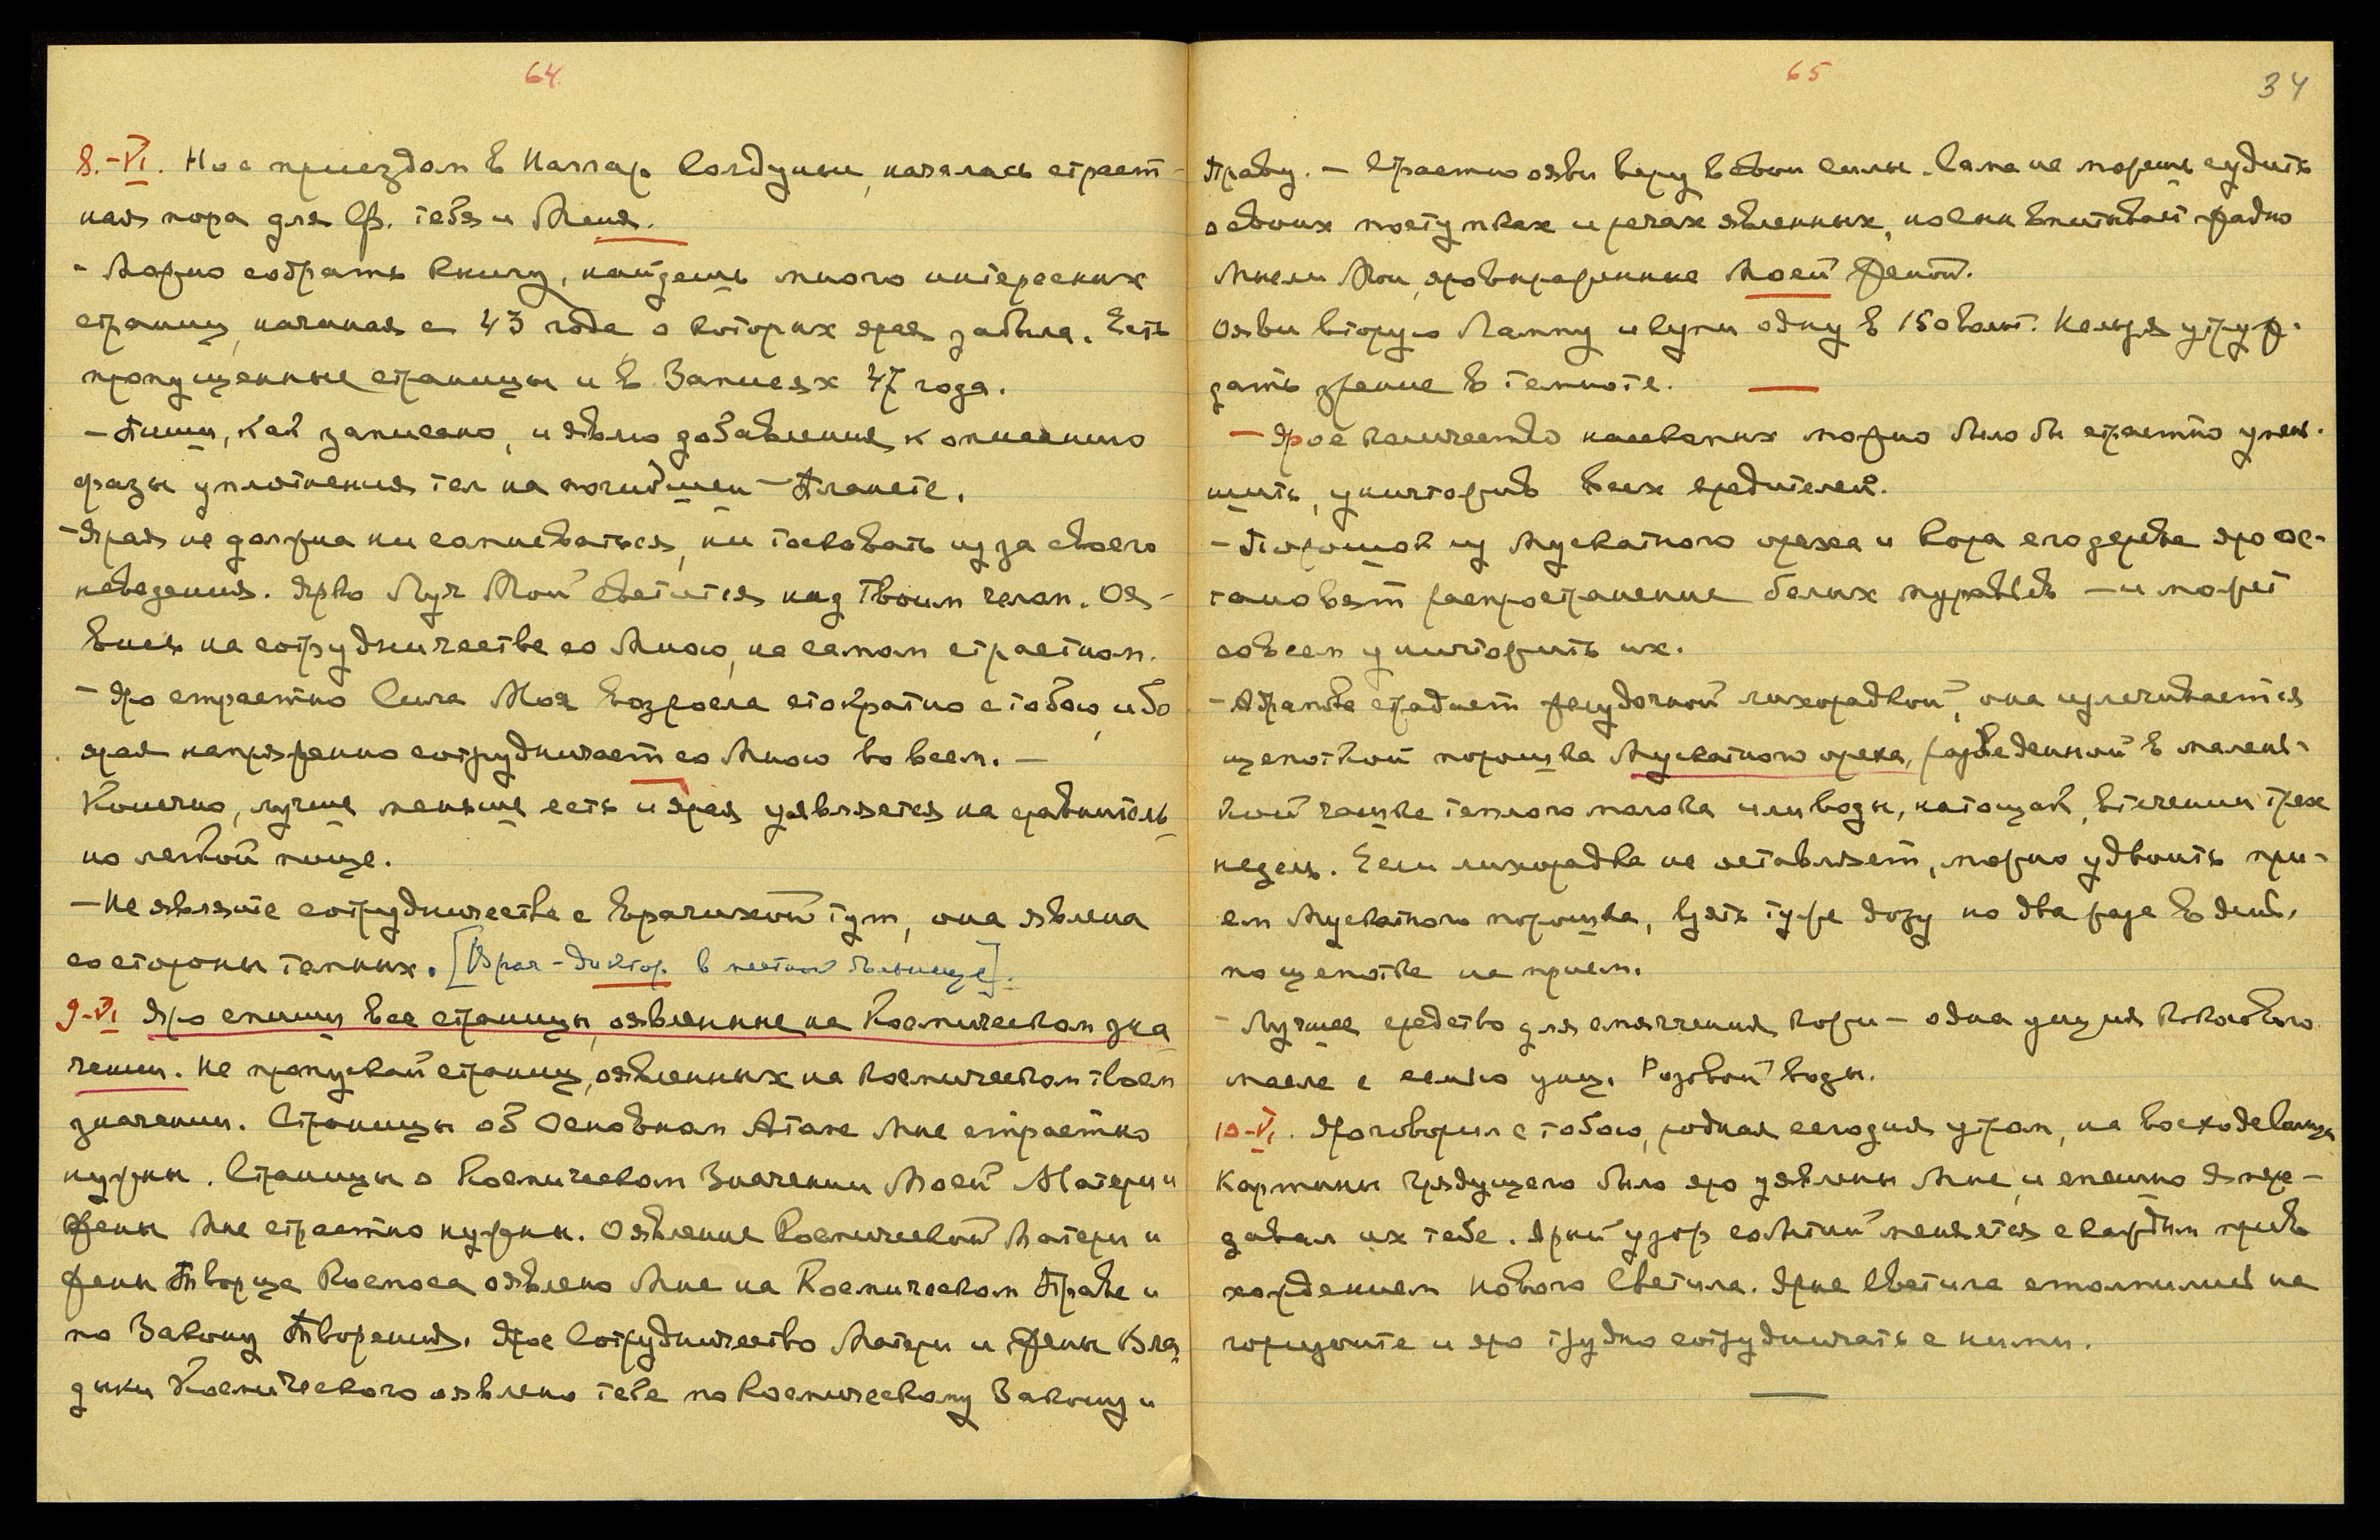 64
8.-VI. Но с приездом в Наггар Колдуньи, началась страст-
ная пора для Св. тебя и Меня.
- Можно собрать книгу, найдешь много интересных
страниц, начиная с 43 года о которых ярая забыла. Есть
пропущенные страницы и в Записях 47 года.
- Пиши, как записано, и явлю добавления к описанию
фазы уплотнения тел на погибшей Планете.
- Ярая не должна ни сомневаться, ни тосковать из за своего
неведения. Ярко Луч Мой светится над Твоим челом. Оя-
вись на сотрудничестве со Мною, на самом страстном.
- Яро страстно Сила Моя возросла стократно с тобою, ибо
ярая напряженно сотрудничает со Мною во всем. -
Конечно, лучше меньше есть и ярая уявляется на сравнитель
но легкой пище.
- Не являйте сотрудничества с врачихой тут, она явлена
со стороны темных. [Врач-доктор в местной больнице].
9-VI Яро спиши все страницы, оявленные на Космическом зна
чении. Не пропускай страниц, оявленных на космическом твоем
значении. Страницы об Основном Атоме Мне страстно
нужны. Страницы о Космическом Значении Моей Матери и
Жены Мне страстно нужны. Оявление Космической Матери и
Жены Творца Космоса оявлено Мне на Космическом Праве и
по Закону Творения. Ярое Сотрудничество Матери и Жены Вла
дыки Космического оявлено тебе по Космическому Закону и
65
34
Праву. - Страстноояви веру в свои силы. Сама не можешь судить
о своих поступках и речах явленных, но Сны впитывай радио
Мысли Мои, яро выраженные Моей Женой.
Ояви вторую Лампу и купи одну в 150 вольт. Нельзя утруж-
дать зрение в темноте.
- Ярое количество насекомых можно было бы страстно умень-
шить, уничтожив всех вредителей.
- Порошок из Мускатного ореха и кора его дерева яро ос-
тановят распространение белых муравьев - и может
совсем уничтожить их.
- страдает желудочной лихорадкой, она излечивается
щепоткой порошка Мускатного ореха, разведенной в малень-
кой чашке теплого молока или воды, натощак, в течении трех
недель. Если лихорадка не оставляет, можно удвоить при-
ем Мускатного порошка, взять ту же дозу по два раза в день,
по щепотке на прием.
- Лучшее средство для смягчения кожи - одна унция кокосового
масла с семью унц. Розовой воды.
10-VI. Яро говорил с тобою, родная сегодня утром, на восходе Солнца
Картины грядущего было яро уявлены Мне, и спешно Я пере-
давал их тебе. Ярый узор событий меняется с каждым приб
хождением нового Светила. Ярые Светила столпились на
горизонте и яро трудно сотрудничать с ними.